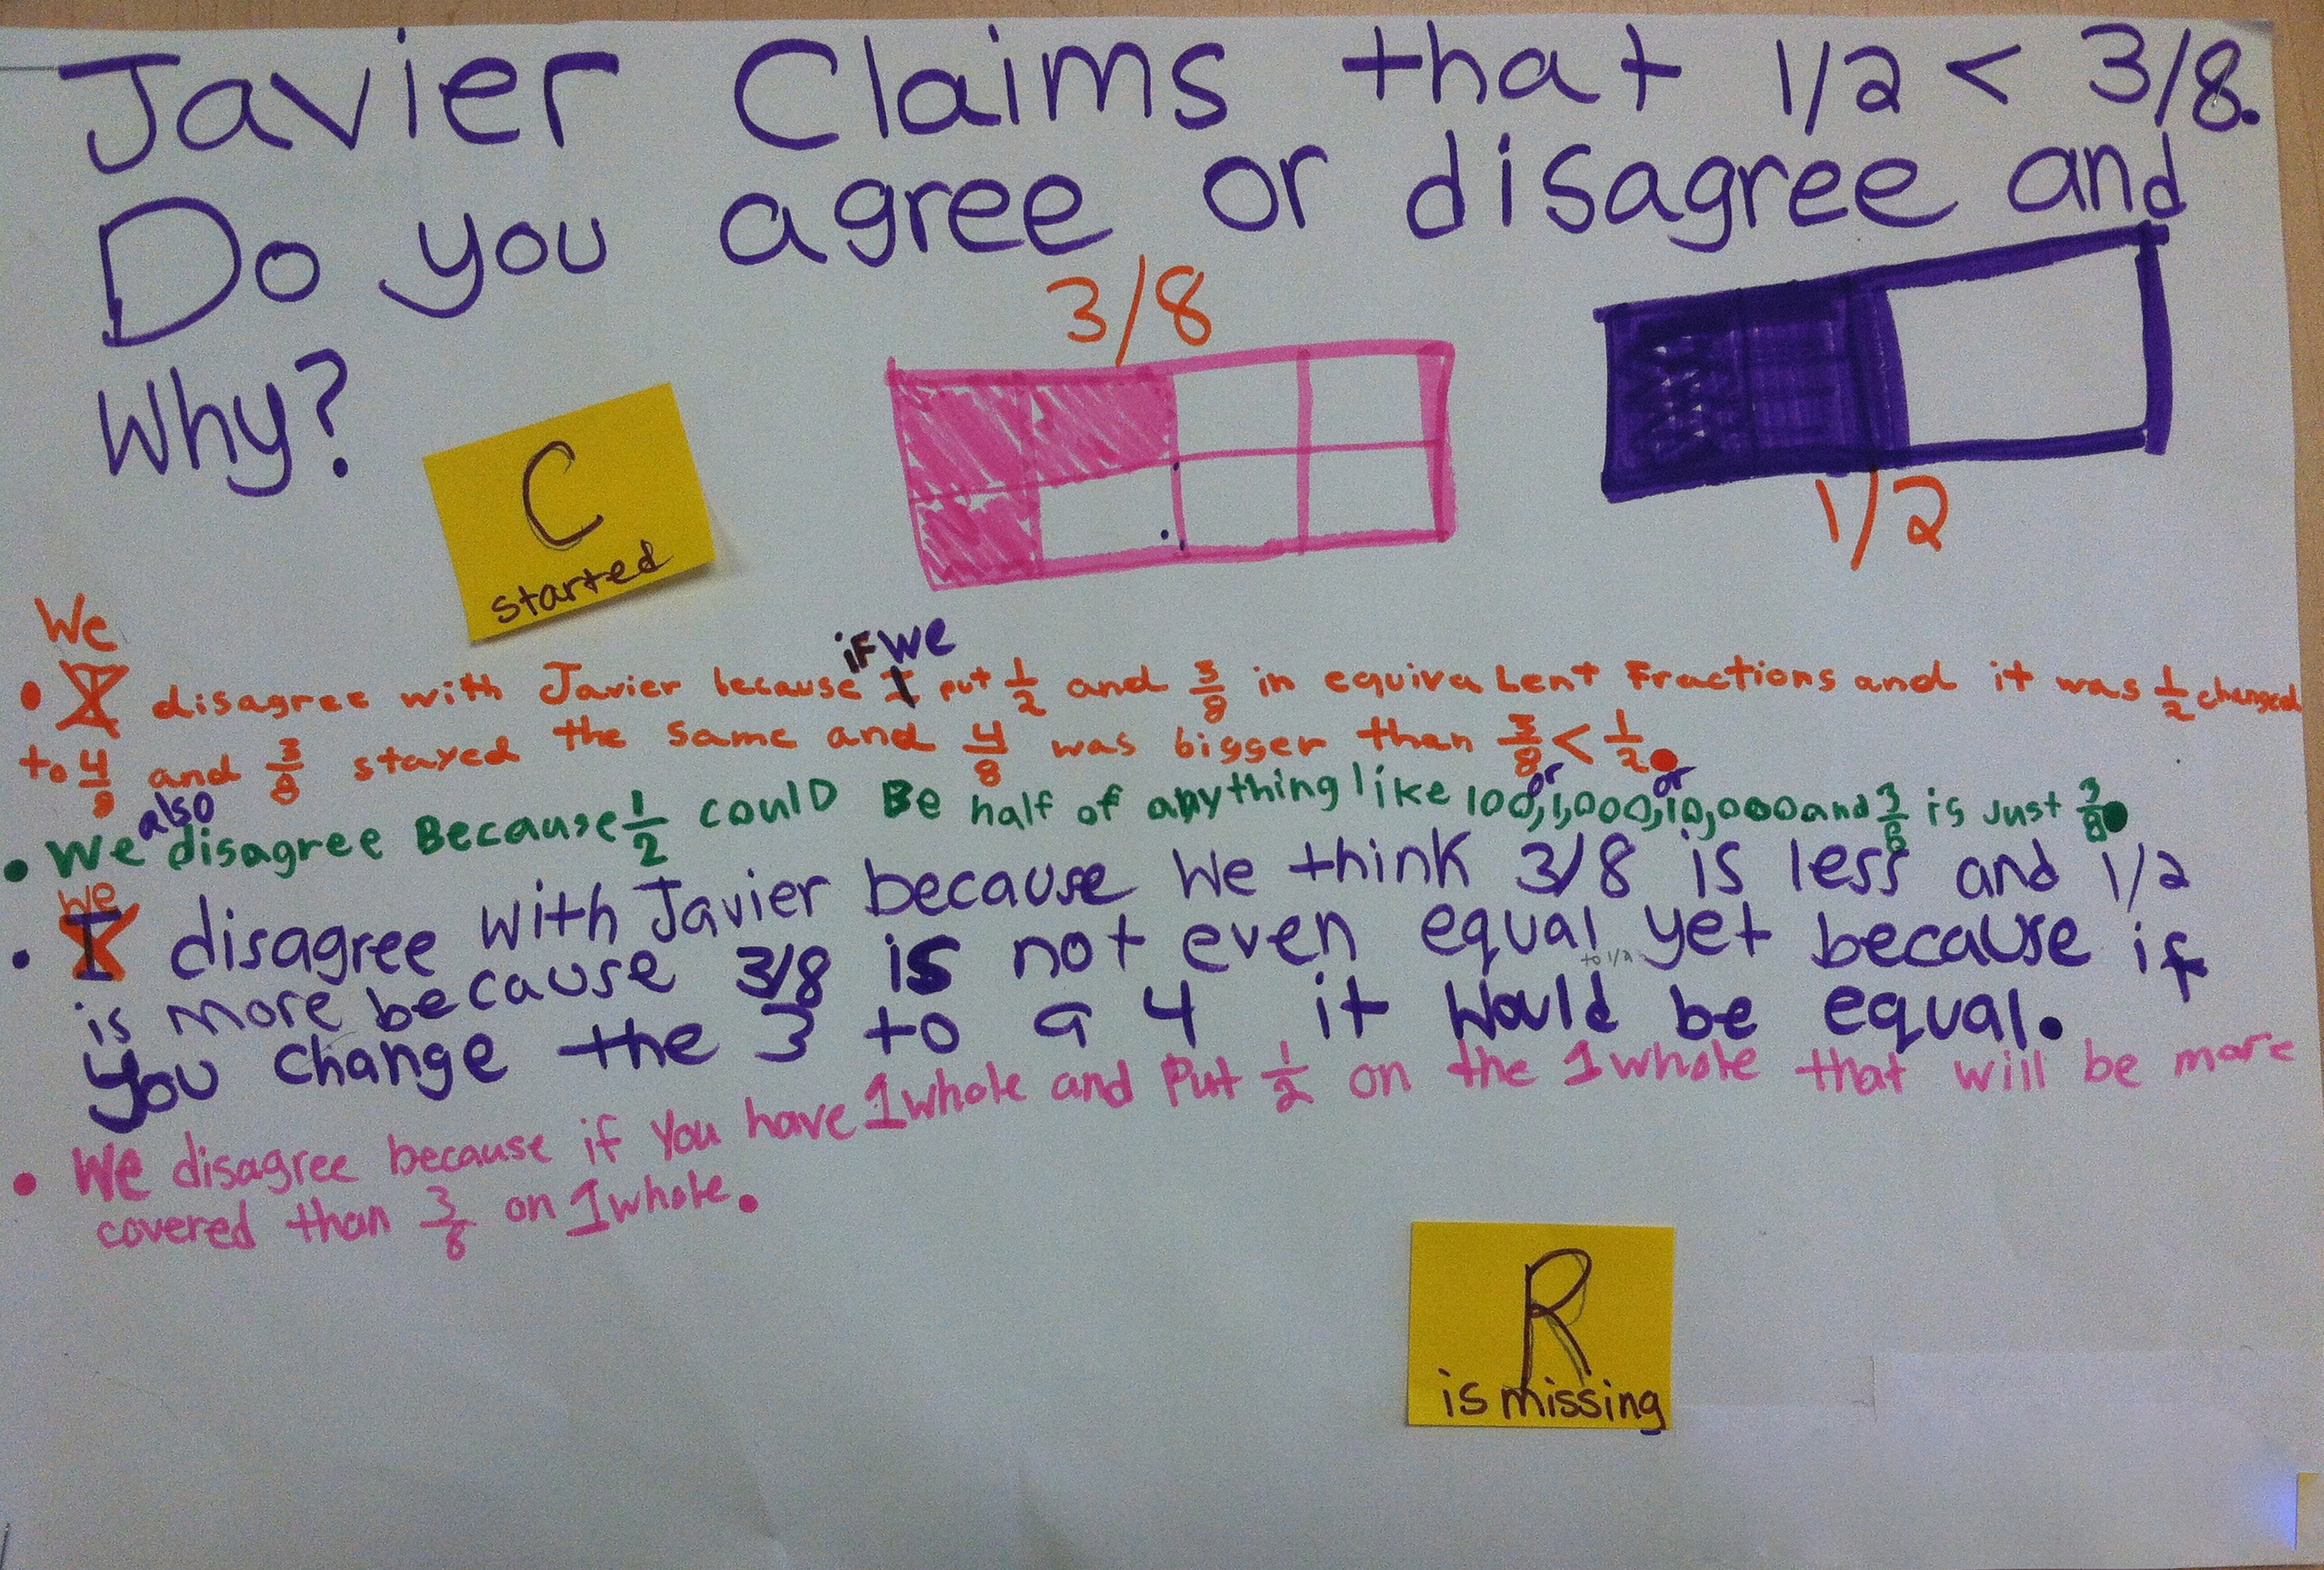 Javier Claims that 1/2 < 3/8.
Do you agree or disagree and
Why?
3/8
1/2
C
started
We
if we
• I disagree with Javier because I put 1/2 and 3/8 in equivalent Fractions and it was 1/2 changed
to 4/8 and 3/8 stayed the same and 4/8 was bigger than 3/8 < 1/2.
also
or or
• We disagree Because 1/2 coulD Be half of anything like 100, 1,000, 10,000 and 3/8 is just 3/8.
We
• I disagree with Javier because We think 3/8 is less and 1/2
is more because 3/8 is not even equal yet because if
to 1/2
you change the 3 to a 4 it Would be equal.
• We disagree because if You have 1 whole and Put 1/2 on the 1 whole that will be more
covered than 3/8 on 1 whole.
R
is missing